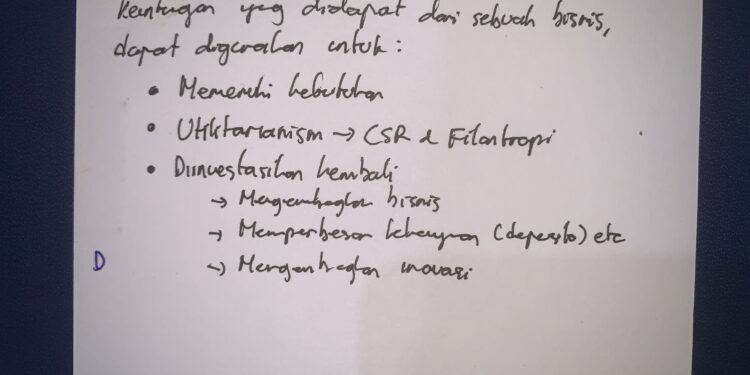 Keuntungan yang didapat dari sebuah bisnis,
dapat digunakan untuk :
• Memenuhi kebutuhan
• Utilitarianism → CSR & Filantropi
• Diinvestasikan kembali
→ Mengembangkan bisnis
→ Memperbesar kekayaan (deposito) etc
D
→ Mengembangkan inovasi